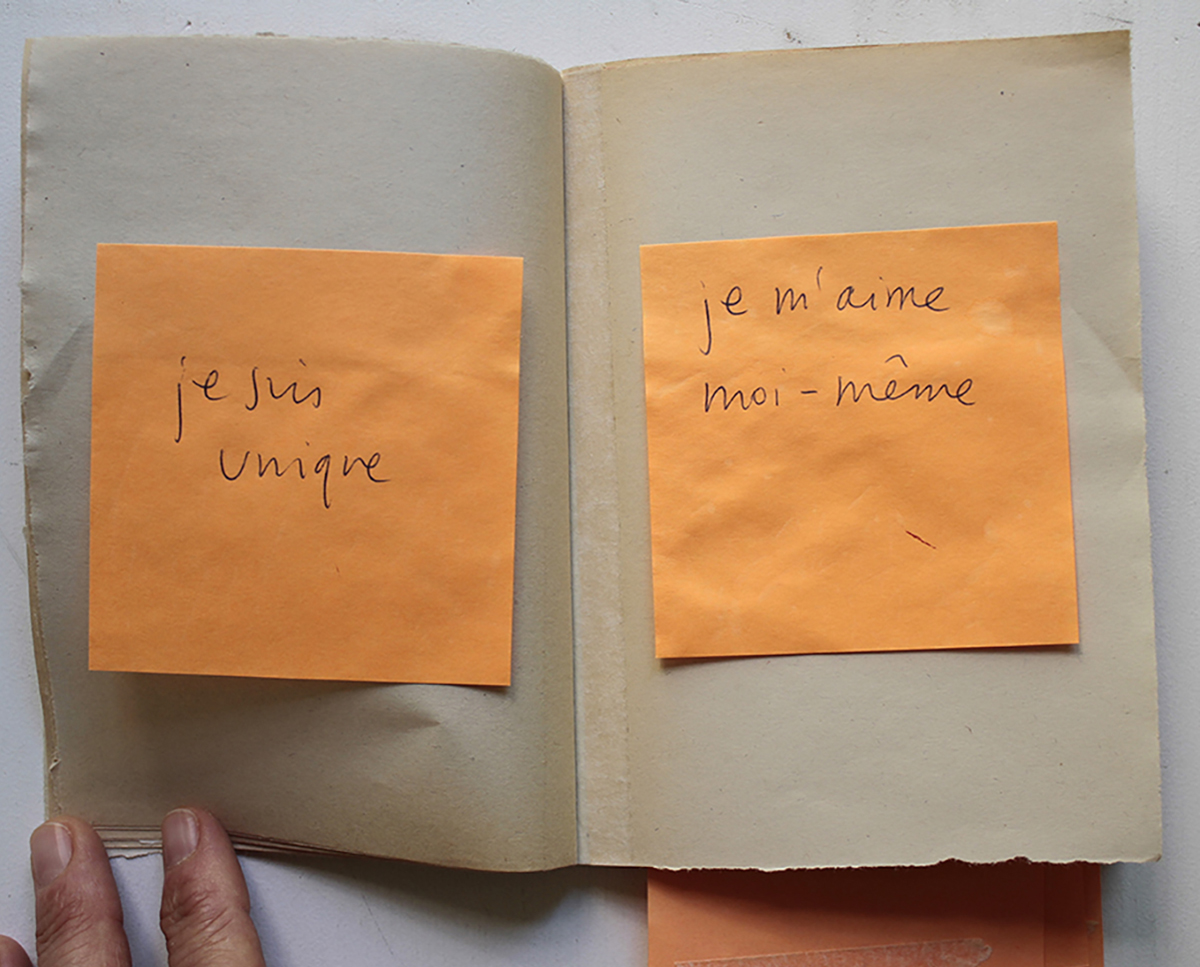 je suis
unique
je m'aime
moi-même